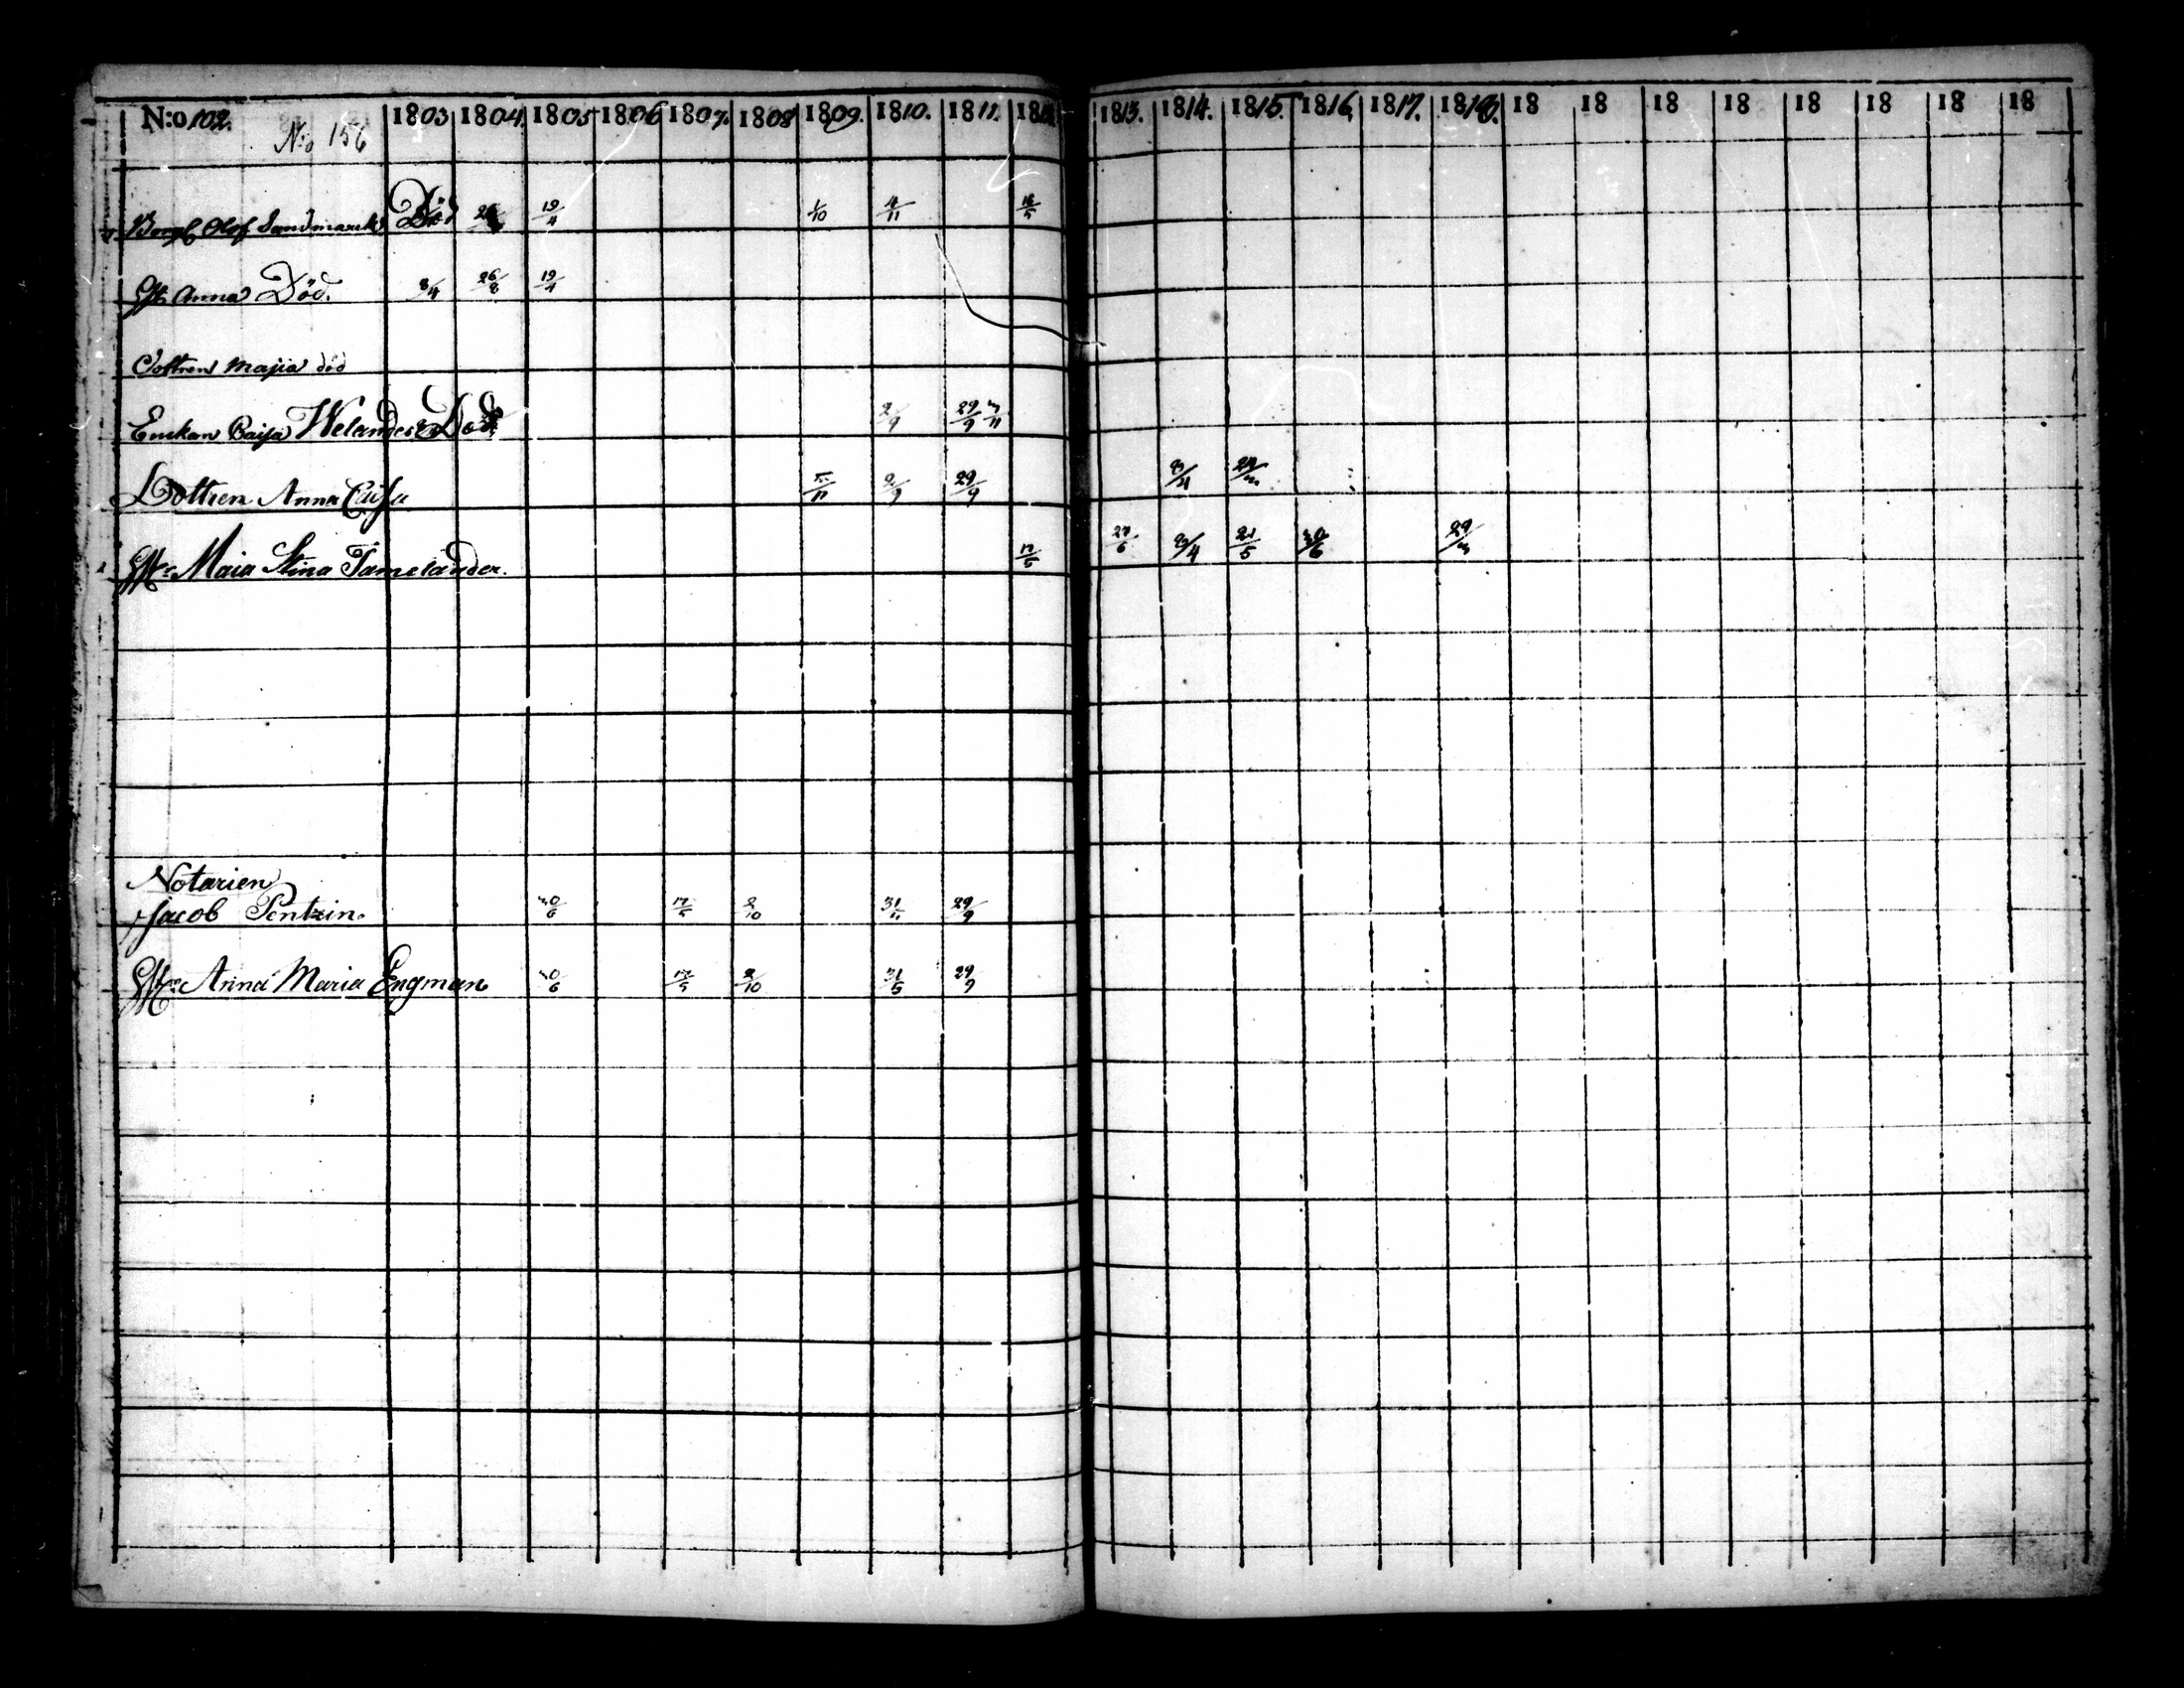 N:o 102. 1803 1804. 1805 1806 1807. 1808 1809. 1810. 1811. 1812 1813. 1814. 1815. 1816. 1817. 1818. 18 18 18 18 18 18 18 18
N:o 156
Borg. Olof Sandmarck Död 19/4 1/10 4/11 18/5
H. Anna Död. 8/4 26/8 19/4
Dottren Majia död
Enckan Caisa Welander Död 2/9 29/9 3/11
Dottren Anna Caisa 2/9 29/9
H. Maia Stina Tamelander. 17/5 27/6 21/5 30/6 29/3
Notarien
Jacob Pentzin. 30/6 17/5 2/10 29/9
H. Anna Maria Engman 30/6 17/5 2/10 31/5 29/9